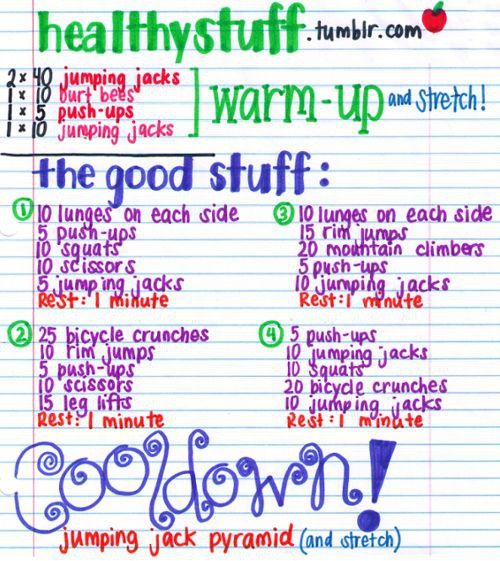 healthystuff.tumblr.com
2 x 40 jumping jacks
1 x 10 burt bees
1 x 5 push-ups
1 x 10 jumping jacks
warm-up and stretch!
the good stuff:
1 10 lunges on each side
5 push-ups
10 squats
10 scissors
5 jumping jacks
Rest: 1 minute
2 25 bicycle crunches
10 rim jumps
5 push-ups
10 scissors
15 leg lifts
Rest: 1 minute
3 10 lunges on each side
15 rim jumps
20 mountain climbers
5 push-ups
10 jumping jacks
Rest: 1 minute
4 5 push-ups
10 jumping jacks
10 squats
20 bicycle crunches
10 jumping jacks
Rest: 1 minute
Cooldown!
jumping jack pyramid (and stretch)